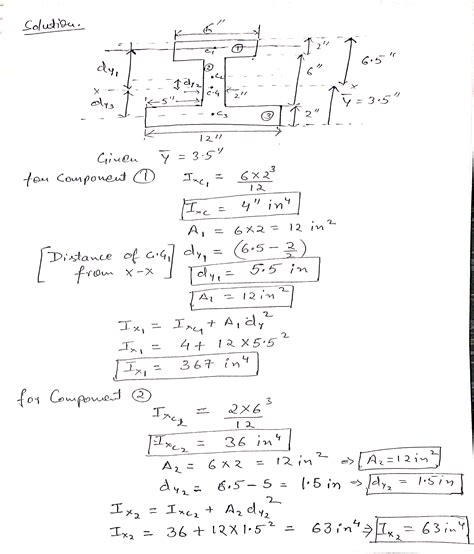 Solution.
6"
C₁ ①
2"
6.5"
dy₁
②
dy₂
C₂
6"
x
C.G
x
dy₃
5"
2"
ȳ = 3.5"
C₃
③
2"
12"
Given ȳ = 3.5"
for Component ① Ixc₁ = 6×2³/12
Ixc = 4" in⁴
A₁ = 6×2 = 12 in²
[Distance of C.G₁ from x-x] dy₁ = (6.5 - 2/2)
dy₁ = 5.5 in
A₁ = 12in²
Ix₁ = Ixc₁ + A₁dy²
Ix₁ = 4 + 12×5.5²
Ix₁ = 367 in⁴
for Component ②
Ixc₂ = 2×6³/12
Ixc₂ = 36 in⁴
A₂ = 6×2 = 12in² ⇒ A₂=12in²
dy₂ = 6.5-5 = 1.5in ⇒ dy₂ = 1.5in
Ix₂ = Ixc₂ + A₂dy₂²
Ix₂ = 36+12×1.5² = 63in⁴ ⇒ Ix₂ = 63in⁴